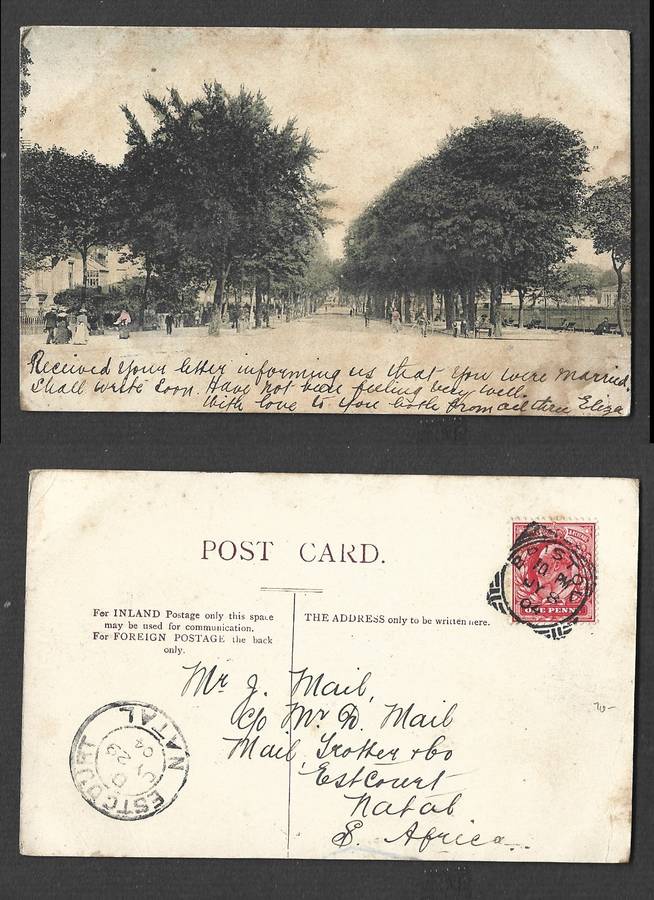 Received your letter informing us that you were married.
Shall write soon. Have not been feeling very well.
With love to you both from Eliza
POST CARD.
For INLAND Postage only this space
may be used for communication.
For FOREIGN POSTAGE the back
only.
THE ADDRESS only to be written here.
BRISTOL
ONE PENNY
Mr J. Mail,
c/o Mr D. Mail
Mail, Trotter & Co
Estcourt
Natal
S. Africa
70-
ESTCOURT NATAL